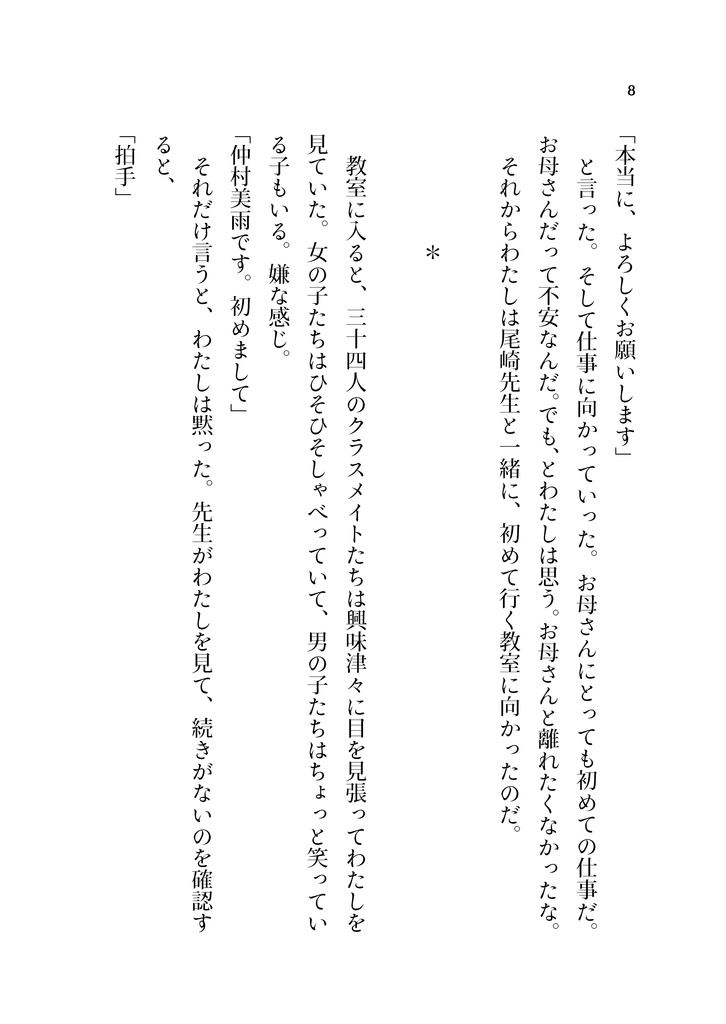 8
「本当に、よろしくお願いします」
　と言った。そして仕事に向かっていった。お母さんにとっても初めての仕事だ。
お母さんだって不安なんだ。でも、とわたしは思う。お母さんと離れたくなかったな。
　それからわたしは尾崎先生と一緒に、初めて行く教室に向かったのだ。
＊
　教室に入ると、三十四人のクラスメイトたちは興味津々に目を見張ってわたしを
見ていた。女の子たちはひそひそしゃべっていて、男の子たちはちょっと笑ってい
る子もいる。嫌な感じ。
「仲村美雨です。初めまして」
　それだけ言うと、わたしは黙った。先生がわたしを見て、続きがないのを確認す
ると、
「拍手」